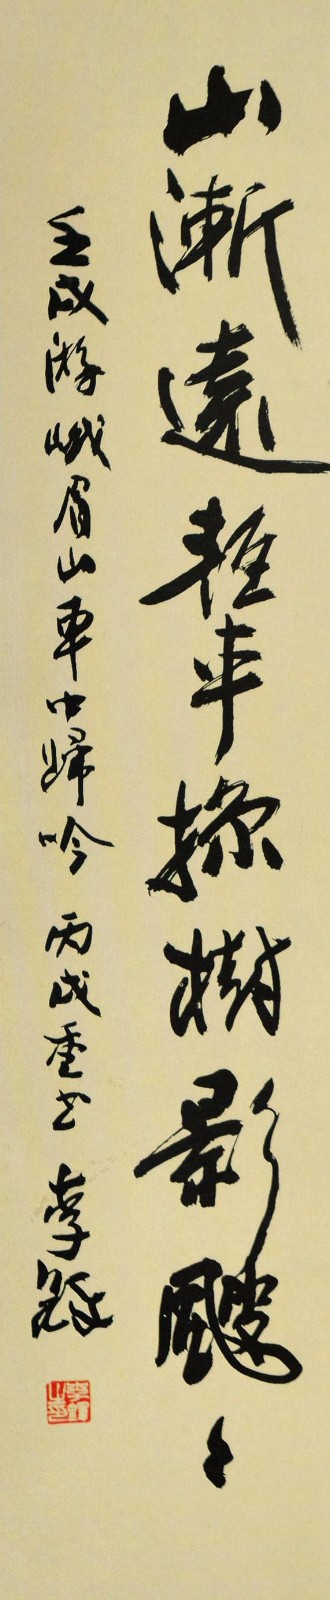 山漸遠輕車掠樹影颼〻
壬戌游峨眉山車中歸吟 丙戌重書 李鐸